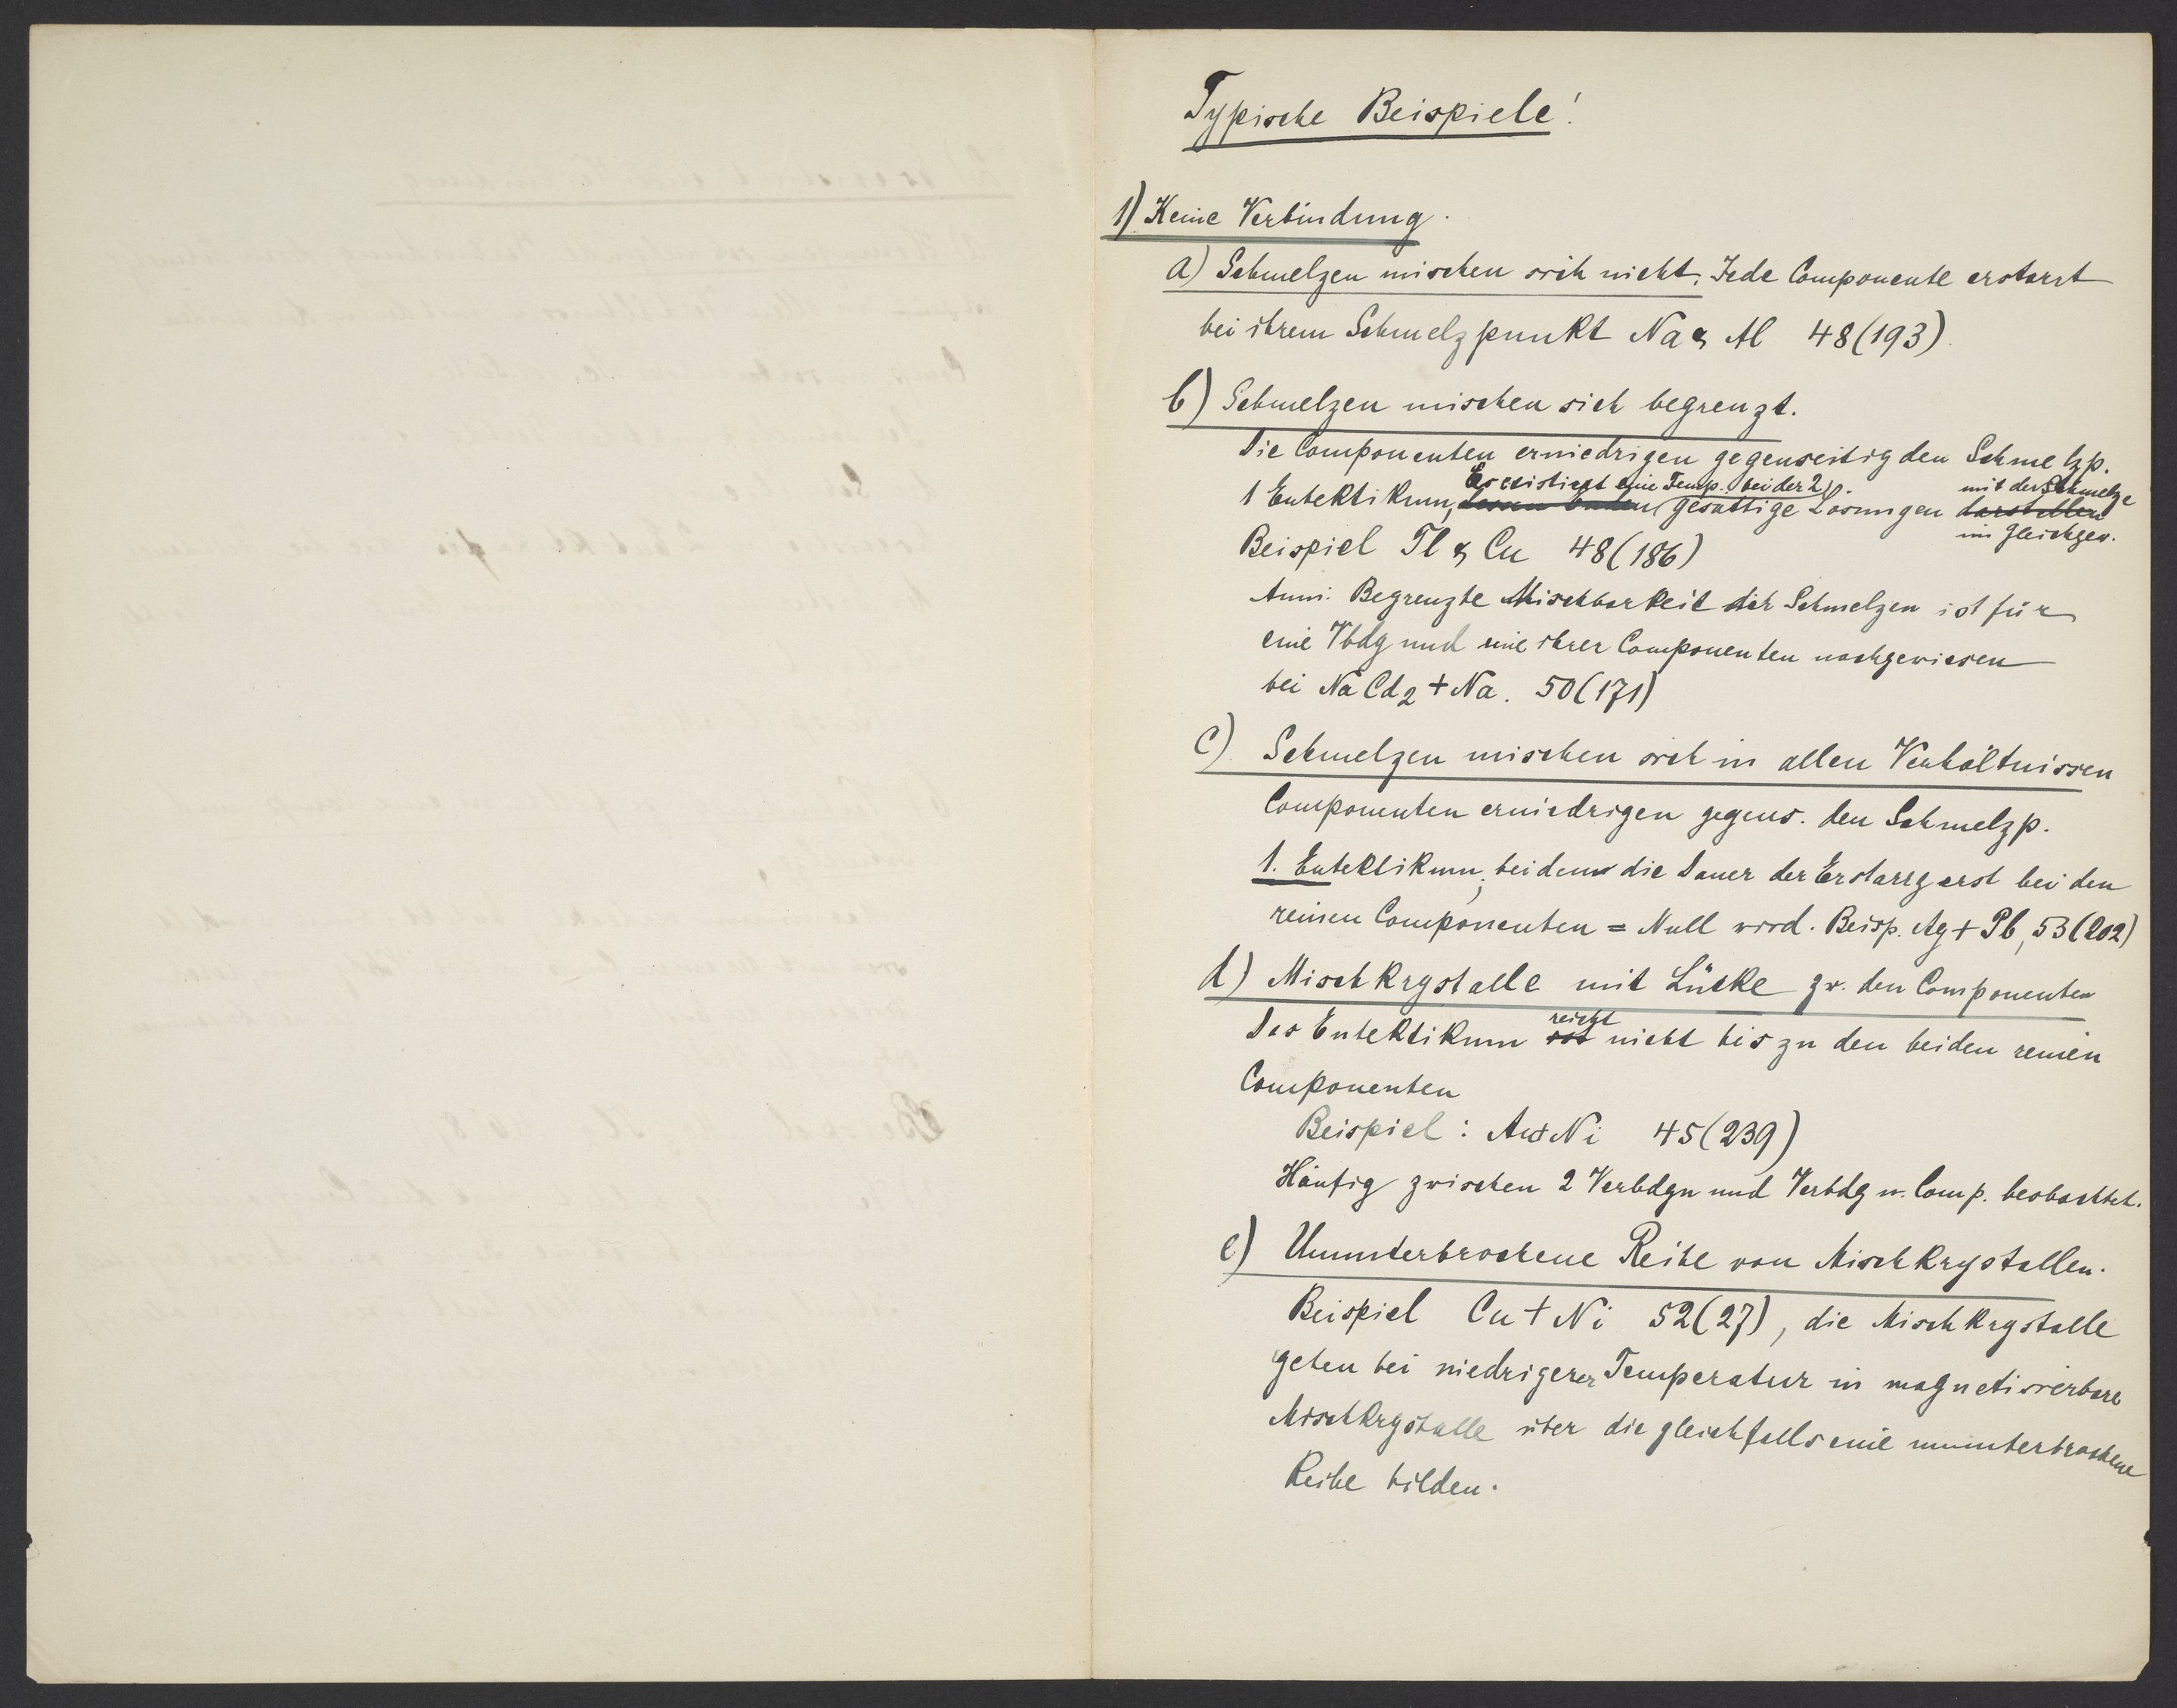 Typische Beispiele!
1) Keine Verbindung.
a) Schmelzen mischen sich nicht. Jede Componente erstarrt
bei ihrem Schmelzpunkt Na & Al 48(193).
b) Schmelzen mischen sich begrenzt.
Die Componenten erniedrigen gegenseitig den Schmelzp.
Es existiert eine Temp. bei der 2 mit der Schmelze
1 Eutektikum, gesättige Lösungen darstellen
im Gleichgew.
Beispiel Tl & Cu 48(186)
Anm: Begrenzte Mischbarkeit der Schmelzen ist für
eine Vbdg und eine ihrer Componenten nachgewiesen
bei NaCd2 + Na. 50(171)
c) Schmelzen mischen sich in allen Verhältnissen
Componenten erniedrigen gegens. den Schmelzp.
1. Eutektikum, bei dem die Dauer der Erstarrg erst bei den
reinen Componenten = Null wird. Beisp. Ag + Pb, 53(202)
d) Mischkrystalle mit Lücke zw. den Componenten
reicht
Das Eutektikum ist nicht bis zu den beiden reinen
Componenten
Beispiel: Au+Ni 45(239)
Häufig zwischen 2 Verbdgn und Verbdg u. Comp. beobachtet.
e) Ununterbrochene Reihe von Mischkrystallen.
Beispiel Cu + Ni 52(27), die Mischkrystalle
gehen bei niedrigerer Temperatur in magnetisierbare
Mischkrystalle über die gleichfalls eine ununterbrochene
Reihe bilden.